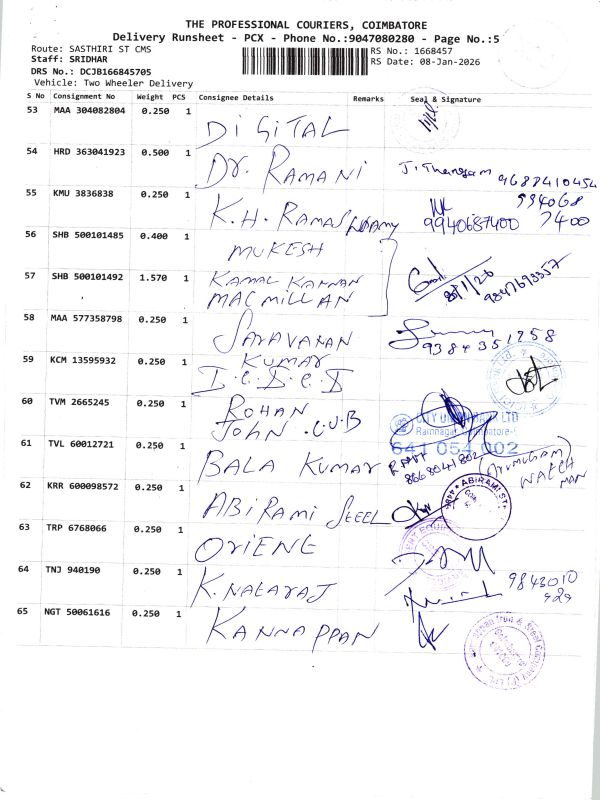 THE PROFESSIONAL COURIERS, COIMBATORE
Delivery Runsheet - PCX - Phone No.:9047080280 - Page No.:5
Route: SASTHIRI ST CMS
RS No.: 1668457
Staff: SRIDHAR
RS Date: 08-Jan-2026
DRS No.: DCJB166845705
Vehicle: Two Wheeler Delivery
S No Consignment No Weight PCS Consignee Details Remarks Seal & Signature
53 MAA 304082804 0.250 1 DIGITAL
54 HRD 363041923 0.500 1 Dr. RAMANI J. Thangam 9688410454
55 KMU 3836838 0.250 1 K.H. RAMASWAMY 9940687400
994068
7400
56 SHB 500101485 0.400 1 MUKESH
57 SHB 500101492 1.570 1 KAMAL KANNAN
MACMILLAN
8/1/26
58 MAA 577358798 0.250 1 SARAVANAN
KUMAR
9384351258
59 KCM 13595932 0.250 1 I.C.D.C.D
60 TVM 2665245 0.250 1 ROHAN
JOHN .C.U.B
CITY UNION BANK LTD
641 054 002
61 TVL 60012721 0.250 1 BALA KUMAR
8668041802
WATCH
MAN
62 KRR 600098572 0.250 1 ABIRAMI STEEL
ABIRAMI ST
63 TRP 6768066 0.250 1 ORIENT
64 TNJ 940190 0.250 1 K. NATARAJ
9843010
929
65 NGT 50061616 0.250 1 KANNAPPAN